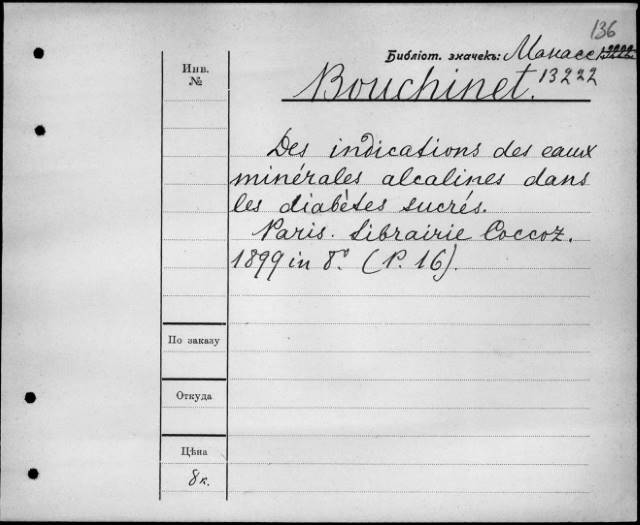 136
Библіот. значекъ: Манасс
13222
Инв.
№
Bouchinet.
Des indications des eaux
minérales alcalines dans
les diabètes sucrés.
Paris. Librairie Coccoz.
1899 in 8°. (P. 16).
По заказу
Откуда
Цѣна
8к.